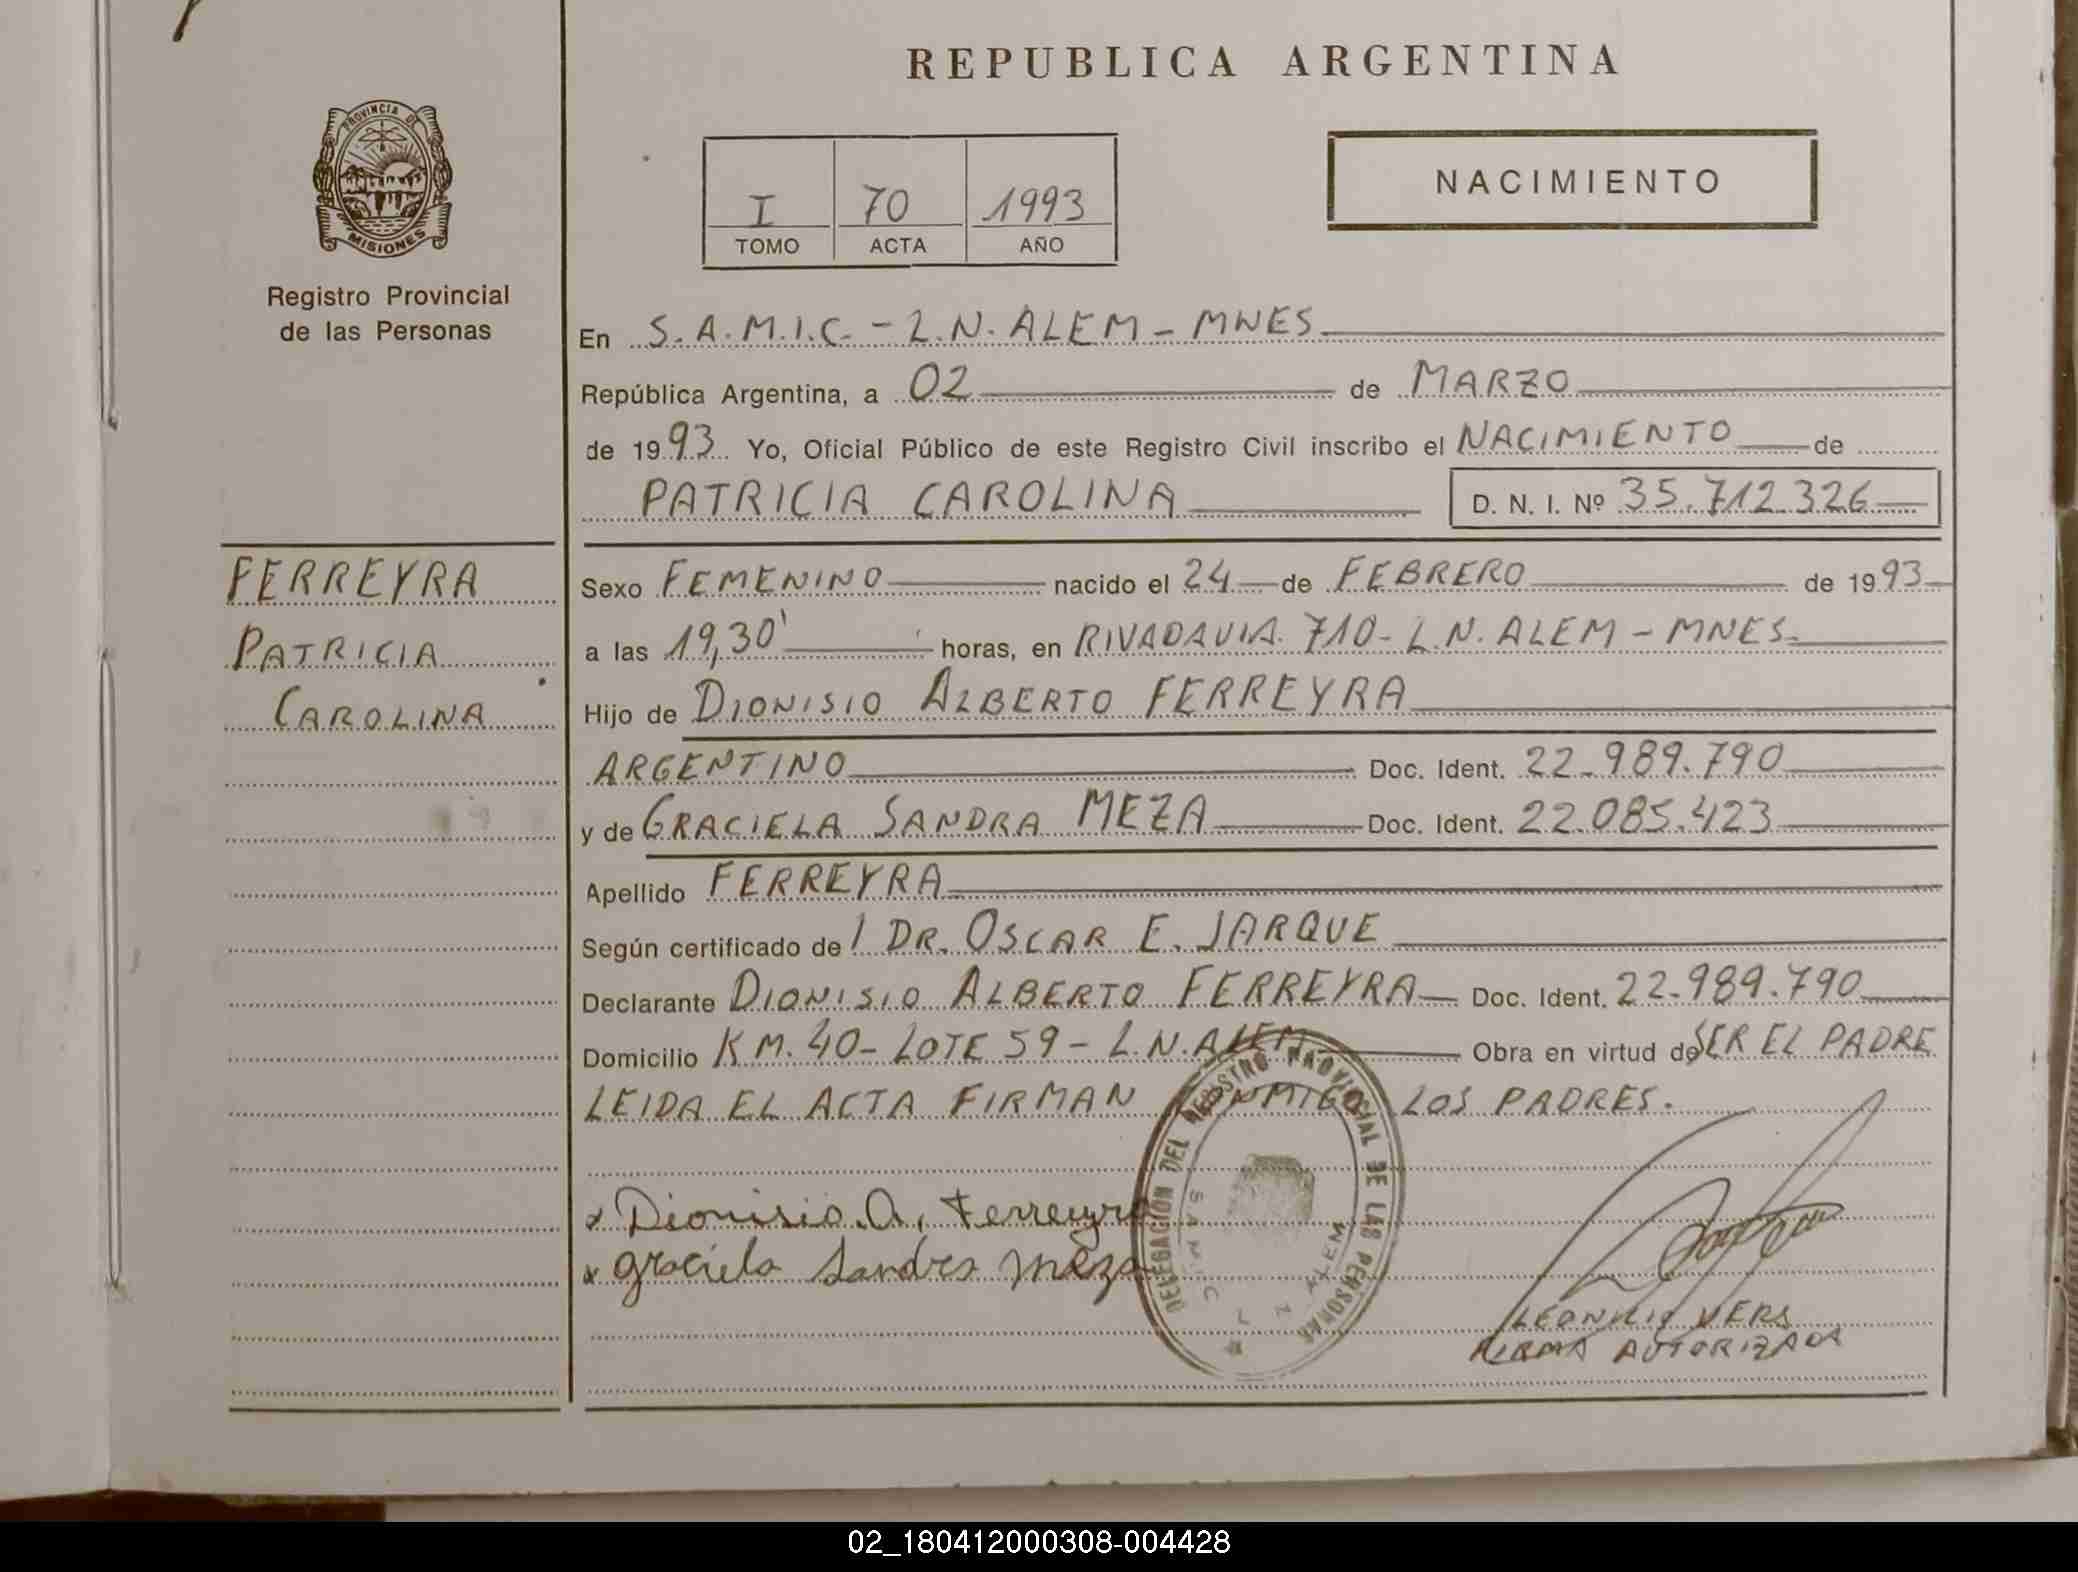 REPUBLICA ARGENTINA
PROVINCIA DE
MISIONES
Registro Provincial
de las Personas
I 70 1993
TOMO ACTA AÑO
NACIMIENTO
En S.A.M.I.C. - L.N. ALEM - MNES
República Argentina, a 02 de MARZO
de 1993 Yo, Oficial Público de este Registro Civil inscribo el NACIMIENTO de
PATRICIA CAROLINA D. N. I. Nº 35.712.326
FERREYRA
PATRICIA
CAROLINA
Sexo FEMENINO nacido el 24 de FEBRERO de 1993
a las 19,30' horas, en RIVADAVIA 710 - L.N. ALEM - MNES.
Hijo de DIONISIO ALBERTO FERREYRA
ARGENTINO Doc. Ident. 22.989.790
y de GRACIELA SANDRA MEZA Doc. Ident. 22.085.423
Apellido FERREYRA
Según certificado de DR. OSCAR E. JARQUE
Declarante DIONISIO ALBERTO FERREYRA Doc. Ident. 22.989.790
Domicilio KM. 40 - LOTE 59 - L.N. ALEM Obra en virtud de SER EL PADRE
LEIDA EL ACTA FIRMAN CONMIGO LOS PADRES.
x Dionisio. A. Ferreyra
x graciela Sandra meza
DELEGACIÓN DEL REGISTRO PROVINCIAL DE LAS PERSONAS
SAMIC L N ALEM
FIRMA AUTORIZADA
02_180412000308-004428